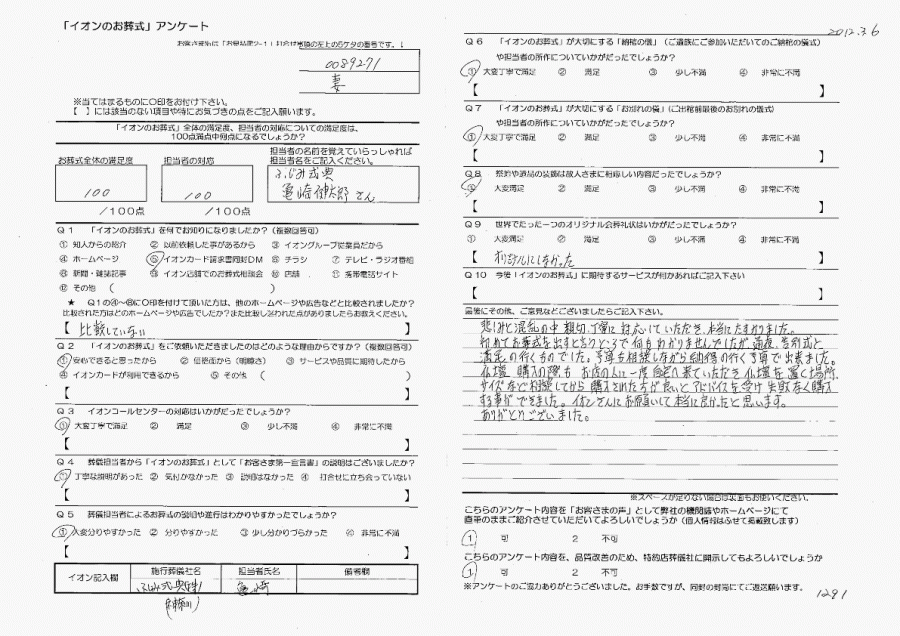 「イオンのお葬式」アンケート
0089271
妻
※当てはまるものに〇印をお付け下さい。
【 】には該当のない項目や特にお気づきの点をご記入願います。
「イオンのお葬式」全体の満足度、担当者の対応についての満足度は、
100点満点中何点になるでしょうか？
お葬式全体の満足度
担当者の対応
担当者の名前を覚えていらっしゃれば
担当者名をご記入ください。
100
/100点
100
/100点
ふじみ式典
亀崎 さん
Q1 「イオンのお葬式」を何でお知りになりましたか？（複数回答可）
① 知人からの紹介 ② 以前依頼した事があるから ③ イオングループ従業員だから
④ ホームページ ⑤ イオンカード請求書同封DM ⑥ チラシ ⑦ テレビ・ラジオ番組
⑧ 新聞・雑誌記事 ⑨ イオン店舗でのお葬式相談会 ⑩ 店舗 ⑪ 携帯電話サイト
⑫ その他（ ）
★ Q1の④～⑧に〇印を付けて頂いた方は、他のホームページや広告などと比較されましたか？
比較された方はどのホームページや広告でしたか？また比較し迷われた点がありましたらお教えください。
【 比較していない 】
Q2 「イオンのお葬式」をご依頼いただきましたのはどのような理由からですか？（複数回答可）
① 安心できると思ったから ② 価格面から（明瞭さ） ③ サービスや品質に期待したから
④ イオンカードが利用できるから ⑤ その他（ ）
【 】
Q3 イオンコールセンターの対応はいかがだったでしょうか？
① 大変丁寧で満足 ② 満足 ③ 少し不満 ④ 非常に不満
【 】
Q4 葬儀担当者から「イオンのお葬式」として「お客さま第一宣言書」の説明はございましたか？
① 丁寧な説明があった ② 気付かなかった ③ 説明はなかった ④ 打合せに立ち会っていない
【 】
Q5 葬儀担当者によるお葬式の説明や進行はわかりやすかったでしょうか？
① 大変分りやすかった ② 分りやすかった ③ 少し分かりづらかった ④ 非常に不満
【 】
イオン記入欄
施行葬儀社名
担当者氏名
備考欄
ふじみ式典(株)
亀崎
(神奈川)
2012.3.6
Q6 「イオンのお葬式」が大切にする「納棺の儀」（ご遺族にご参加いただいてのご納棺の儀式）
や担当者の所作についていかがだったでしょうか？
① 大変丁寧で満足 ② 満足 ③ 少し不満 ④ 非常に不満
【 】
Q7 「イオンのお葬式」が大切にする「お別れの儀」（ご出棺前最後のお別れの儀式）
や担当者の所作についていかがだったでしょうか？
① 大変丁寧で満足 ② 満足 ③ 少し不満 ④ 非常に不満
【 】
Q8 祭壇や遺品の装飾は故人さまに相応しい内容だったでしょうか？
① 大変満足 ② 満足 ③ 少し不満 ④ 非常に不満
【 】
Q9 世界でたった一つのオリジナル会葬礼状はいかがだったでしょうか？
① 大変満足 ② 満足 ③ 少し不満 ④ 非常に不満
【 オリジナルにしなかった 】
Q10 今後「イオンのお葬式」に期待するサービスが何かあればご記入下さい
【 】
最後にその他、ご意見などございましたらご記入下さい。
悲しみと混乱の中 親切、丁寧に対応していただき、本当にたすかりました。
初めてお葬式を出すと言うところで何もわかりませんでしたが、通夜、告別式と
満足の行くものでした。予算も相談しながら納得の行く予算で出来ました。
仏壇 購入の際も お店の人に一度自宅へ来ていただき 仏壇を置く場所、
サイズなどお話してから 購入された方が良いとアドバイスを受け 失敗なく購入
する事ができました。イオンさんにお願いして本当に良かったと思います。
ありがとうございました。
※スペースが足りない場合は裏面もお使いください。
こちらのアンケート内容を「お客さまの声」として弊社の機関誌やホームページにて
直筆のままご紹介させていただいてよろしいでしょうか（個人情報はふせて掲載致します）
1 可 2 不可
こちらのアンケート内容を、品質改善のため、特約店葬儀社に開示してもよろしいでしょうか
1 可 2 不可
※アンケートのご協力ありがとうございました。お手数ですが、同封の封筒にてご返送願います。
1291